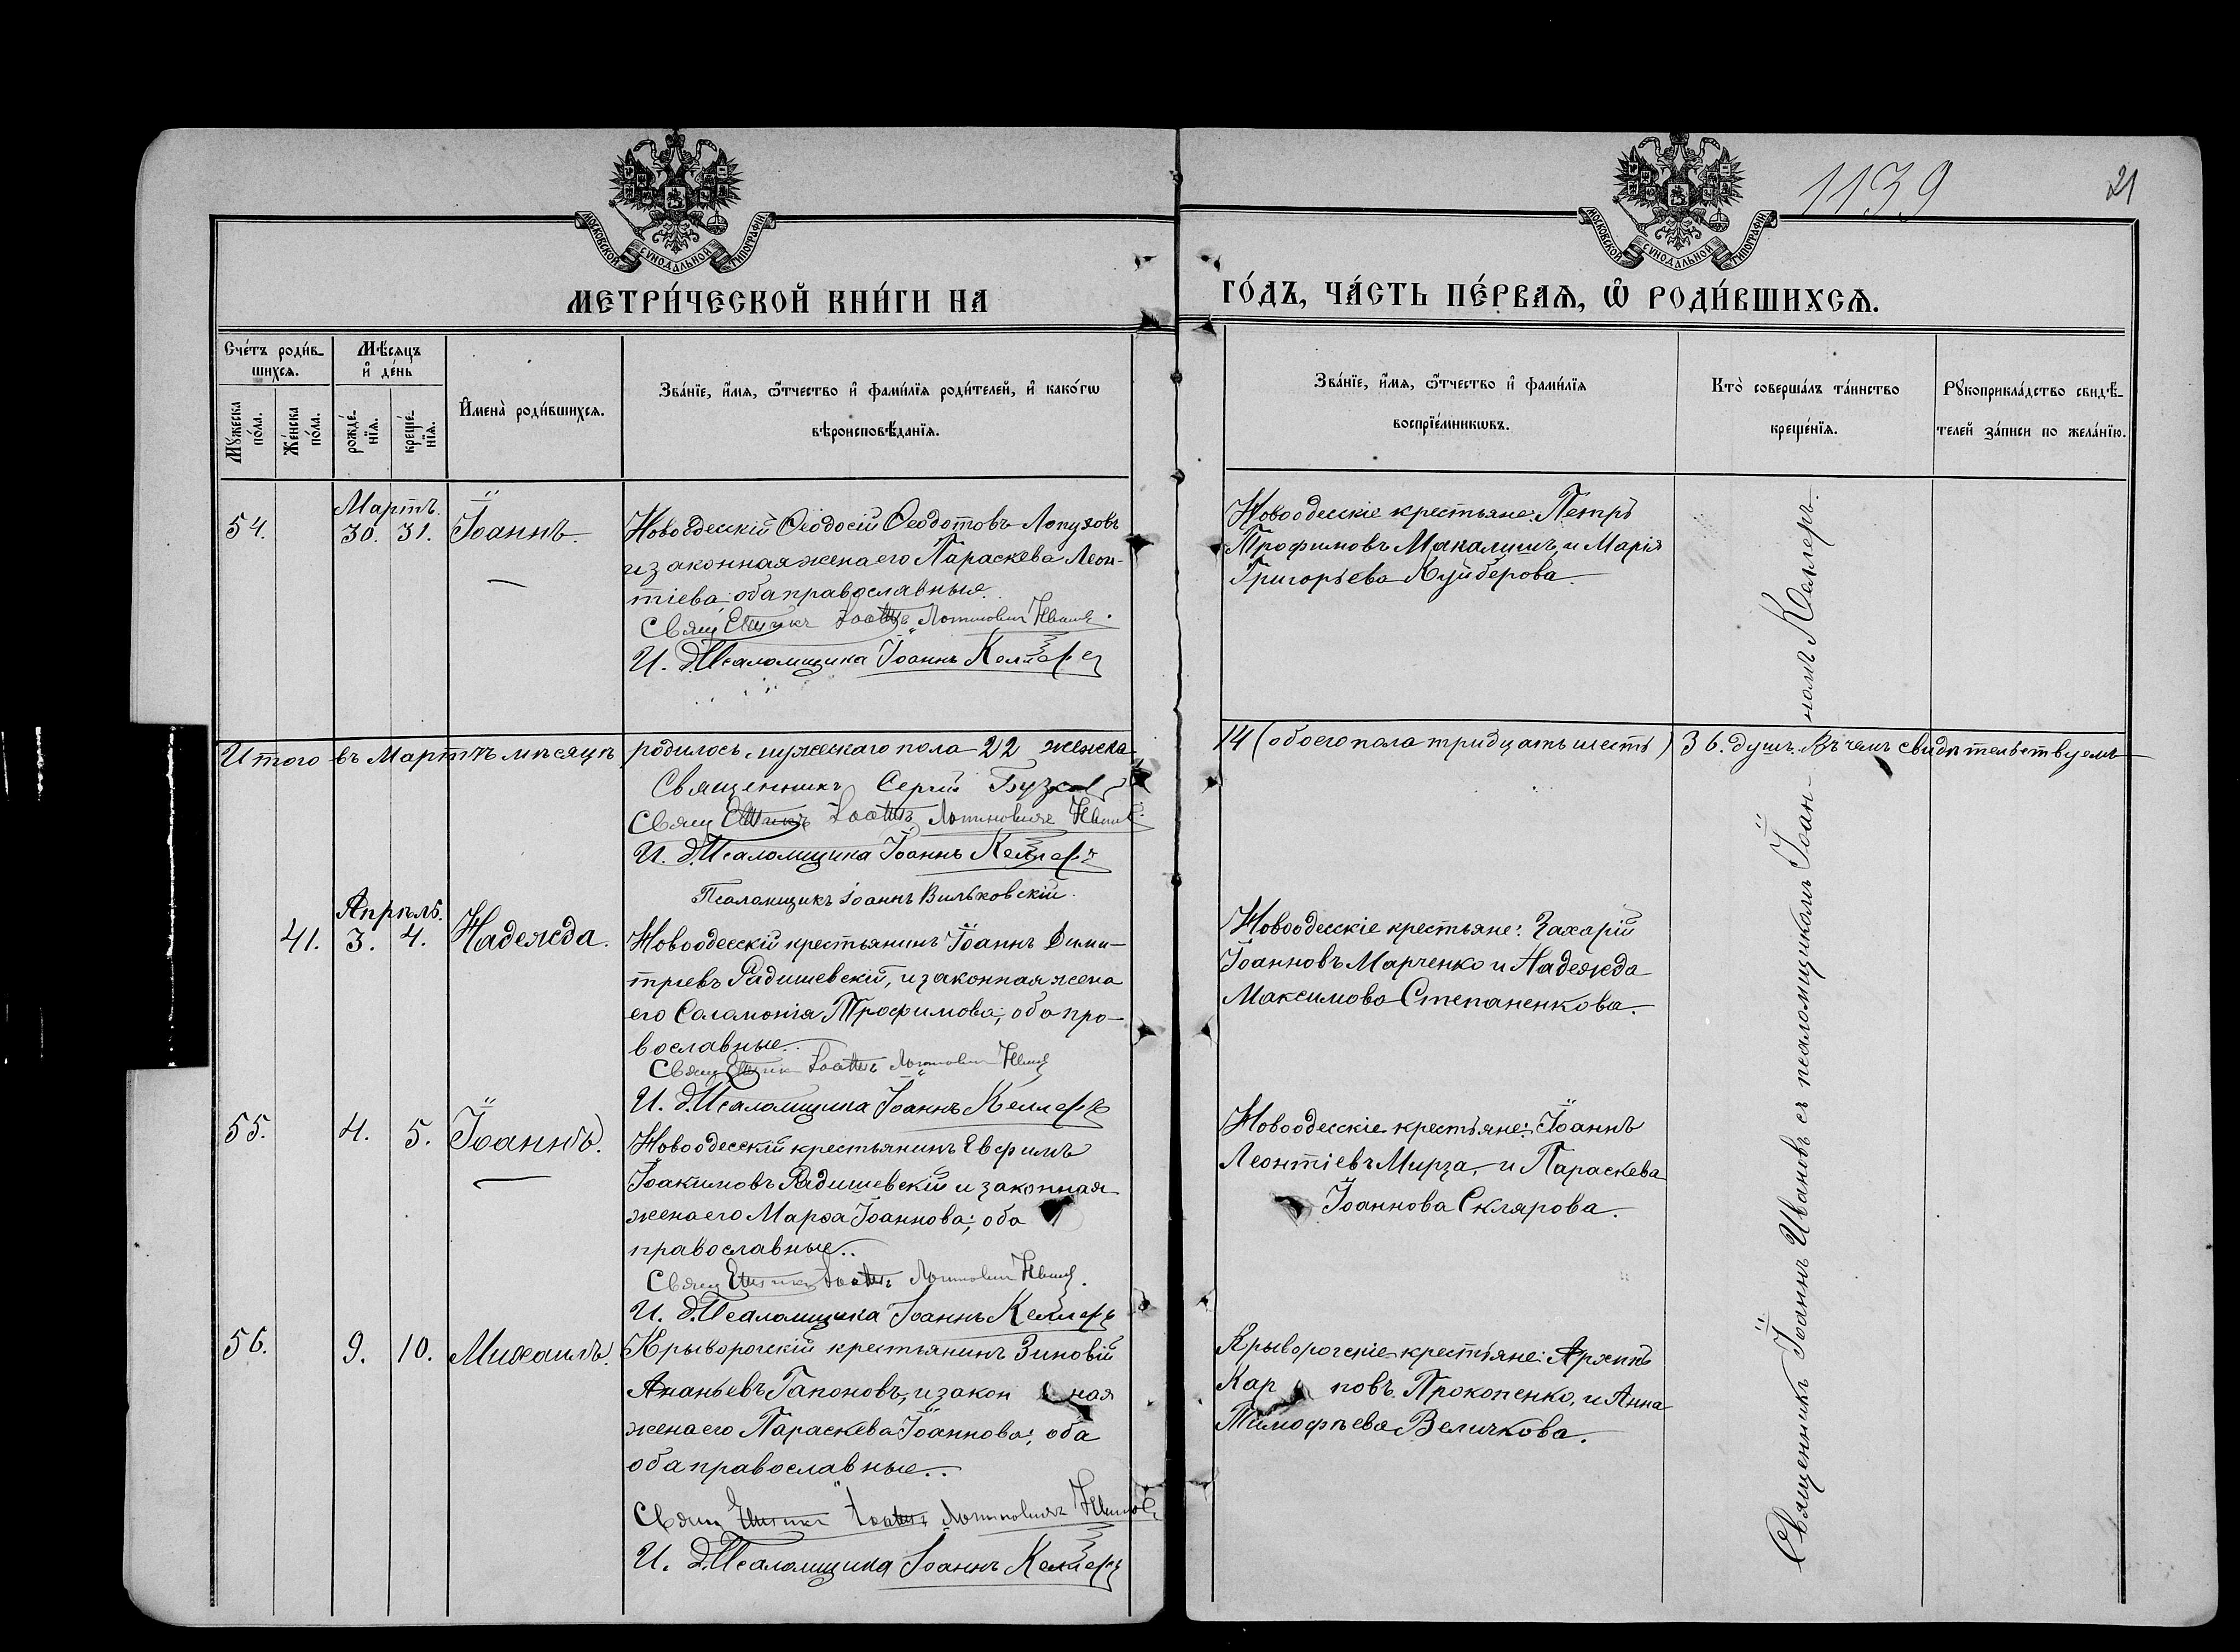 1139
21
МОСКОВСКОЙ СѴНОДАЛЬНОЙ ТИПОГРАФІИ
МОСКОВСКОЙ СѴНОДАЛЬНОЙ ТИПОГРАФІИ
МЕТРИ́ЧЕСКОЙ КНИ́ГИ НА
ГО́ДЪ, ЧА́СТЬ ПЕ́РВАѦ, Ѡ҃ РОДИ́ВШИХСѦ.
Сче́тъ роди́в-
шихсѧ.
Мꙋ́жеска
по́ла.
Же́нска
по́ла.
Мѣ́сѧцъ
и҆ де́нь
рожде́-
нїѧ.
креще́-
нїѧ.
И҆мена̀ роди́вшихсѧ.
Зва́нїе, и҆́мѧ, ѻ҆́тчество и҆ фами́лїѧ роди́телей, и҆ како́гѡ
вѣроисповѣ́данїѧ.
Зва́нїе, и҆́мѧ, ѻ҆́тчество и҆ фами́лїѧ
воспрїе́мникѡвъ.
Кто̀ соверша́лъ та́инство
креще́нїѧ.
Рꙋкоприкла́дство свидѣ́-
телей за́писи по жела́нїю.
Мартъ.
54. 30. 31. Іоаннъ.
Новоодесскій Ѳеодосій Ѳеодотовъ Лопуховъ
и законная жена его Параскева Леон-
тіева; оба православные.
Свящ
И. д. Псаломщика Іоаннъ Келлеръ
Новоодесскіе крестьяне: Петръ
Трофимовъ Макалишъ и Марія
Григорьева Куйберова.
Итого въ Мартѣ мѣсяцѣ родилось мужескаго пола 22 женска
14 (обоего пола тридцать шесть) 36. душъ. Въ чемъ свидѣтельствуемъ
Священникъ Сергій
Свящ
И. д. Псаломщика Іоаннъ Келлеръ
Псаломщикъ Іоаннъ Вильковскій.
Апрѣль.
41. 3. 4. Надежда.
Новоодесскій крестьянинъ Іоаннъ Дими-
тріевъ Радишевскій, и законная жена
его Саломонія Трофимова; оба пра-
вославные.
Свящ
И. д. Псаломщика Іоаннъ Келлеръ
Новоодесскіе крестьяне: Захарій
Іоанновъ Марченко и Надежда
Максимова Степаненкова.
55. 4. 5. Іоаннъ.
Новоодесскій крестьянинъ Евфимъ
Іоакимовъ Радишевскій и законная
жена его Марѳа Іоаннова; оба
православные..
Свящ
И. д. Псаломщика Іоаннъ Келлеръ
Новоодесскіе крестьяне: Іоаннъ
Леонтіевъ Мирза, и Параскева
Іоаннова Склярова.
56. 9. 10. Михаилъ.
Крыворогскій крестьянинъ Зиновій
Ананьевъ Гапоновъ, и закон ная
жена его Параскева Іоаннова; оба
оба православные..
Свящ
И. д. Псаломщика Іоаннъ Келлеръ
Крыворогскіе крестьяне: Архипъ
Кар повъ Прокопенко, и Анна
Тимофѣева Величкова.
Священникъ Іоаннъ Ивановъ съ псаломщикомъ Іоан-номъ Келлеръ.